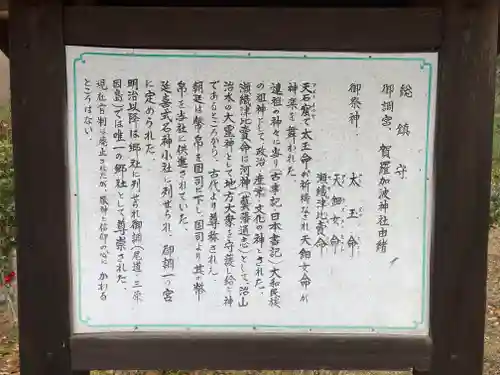 総鎮守
御調宮、賀羅加波神社由緒
御祭神 太玉命
天鈿女命
瀬織津比賣命
天石窟で太玉命が祈祷なされ天鈿女命が
神楽を舞われた。
遠祖の神々に当り(古事記日本書記)大和民族
の祖神として政治、産業、文化の神とされた。
瀬織津比賣命は河神(藝藩通志)として、治山
治水の大霊神として地方大衆を守護し給う神
であるところから、古代より尊称された。
朝廷は幣帛を国司に下し国司より其の幣
帛を当社に供進されていた。
延喜式名神小社に列せられ、御調一の宮
に定められた。
明治以降は郷社に列せられ御調(尾道・三原・
因島)では唯一の郷社として尊崇された。
現在社制は廃止されたが、敬神と信仰の心にかわる
ところはない。